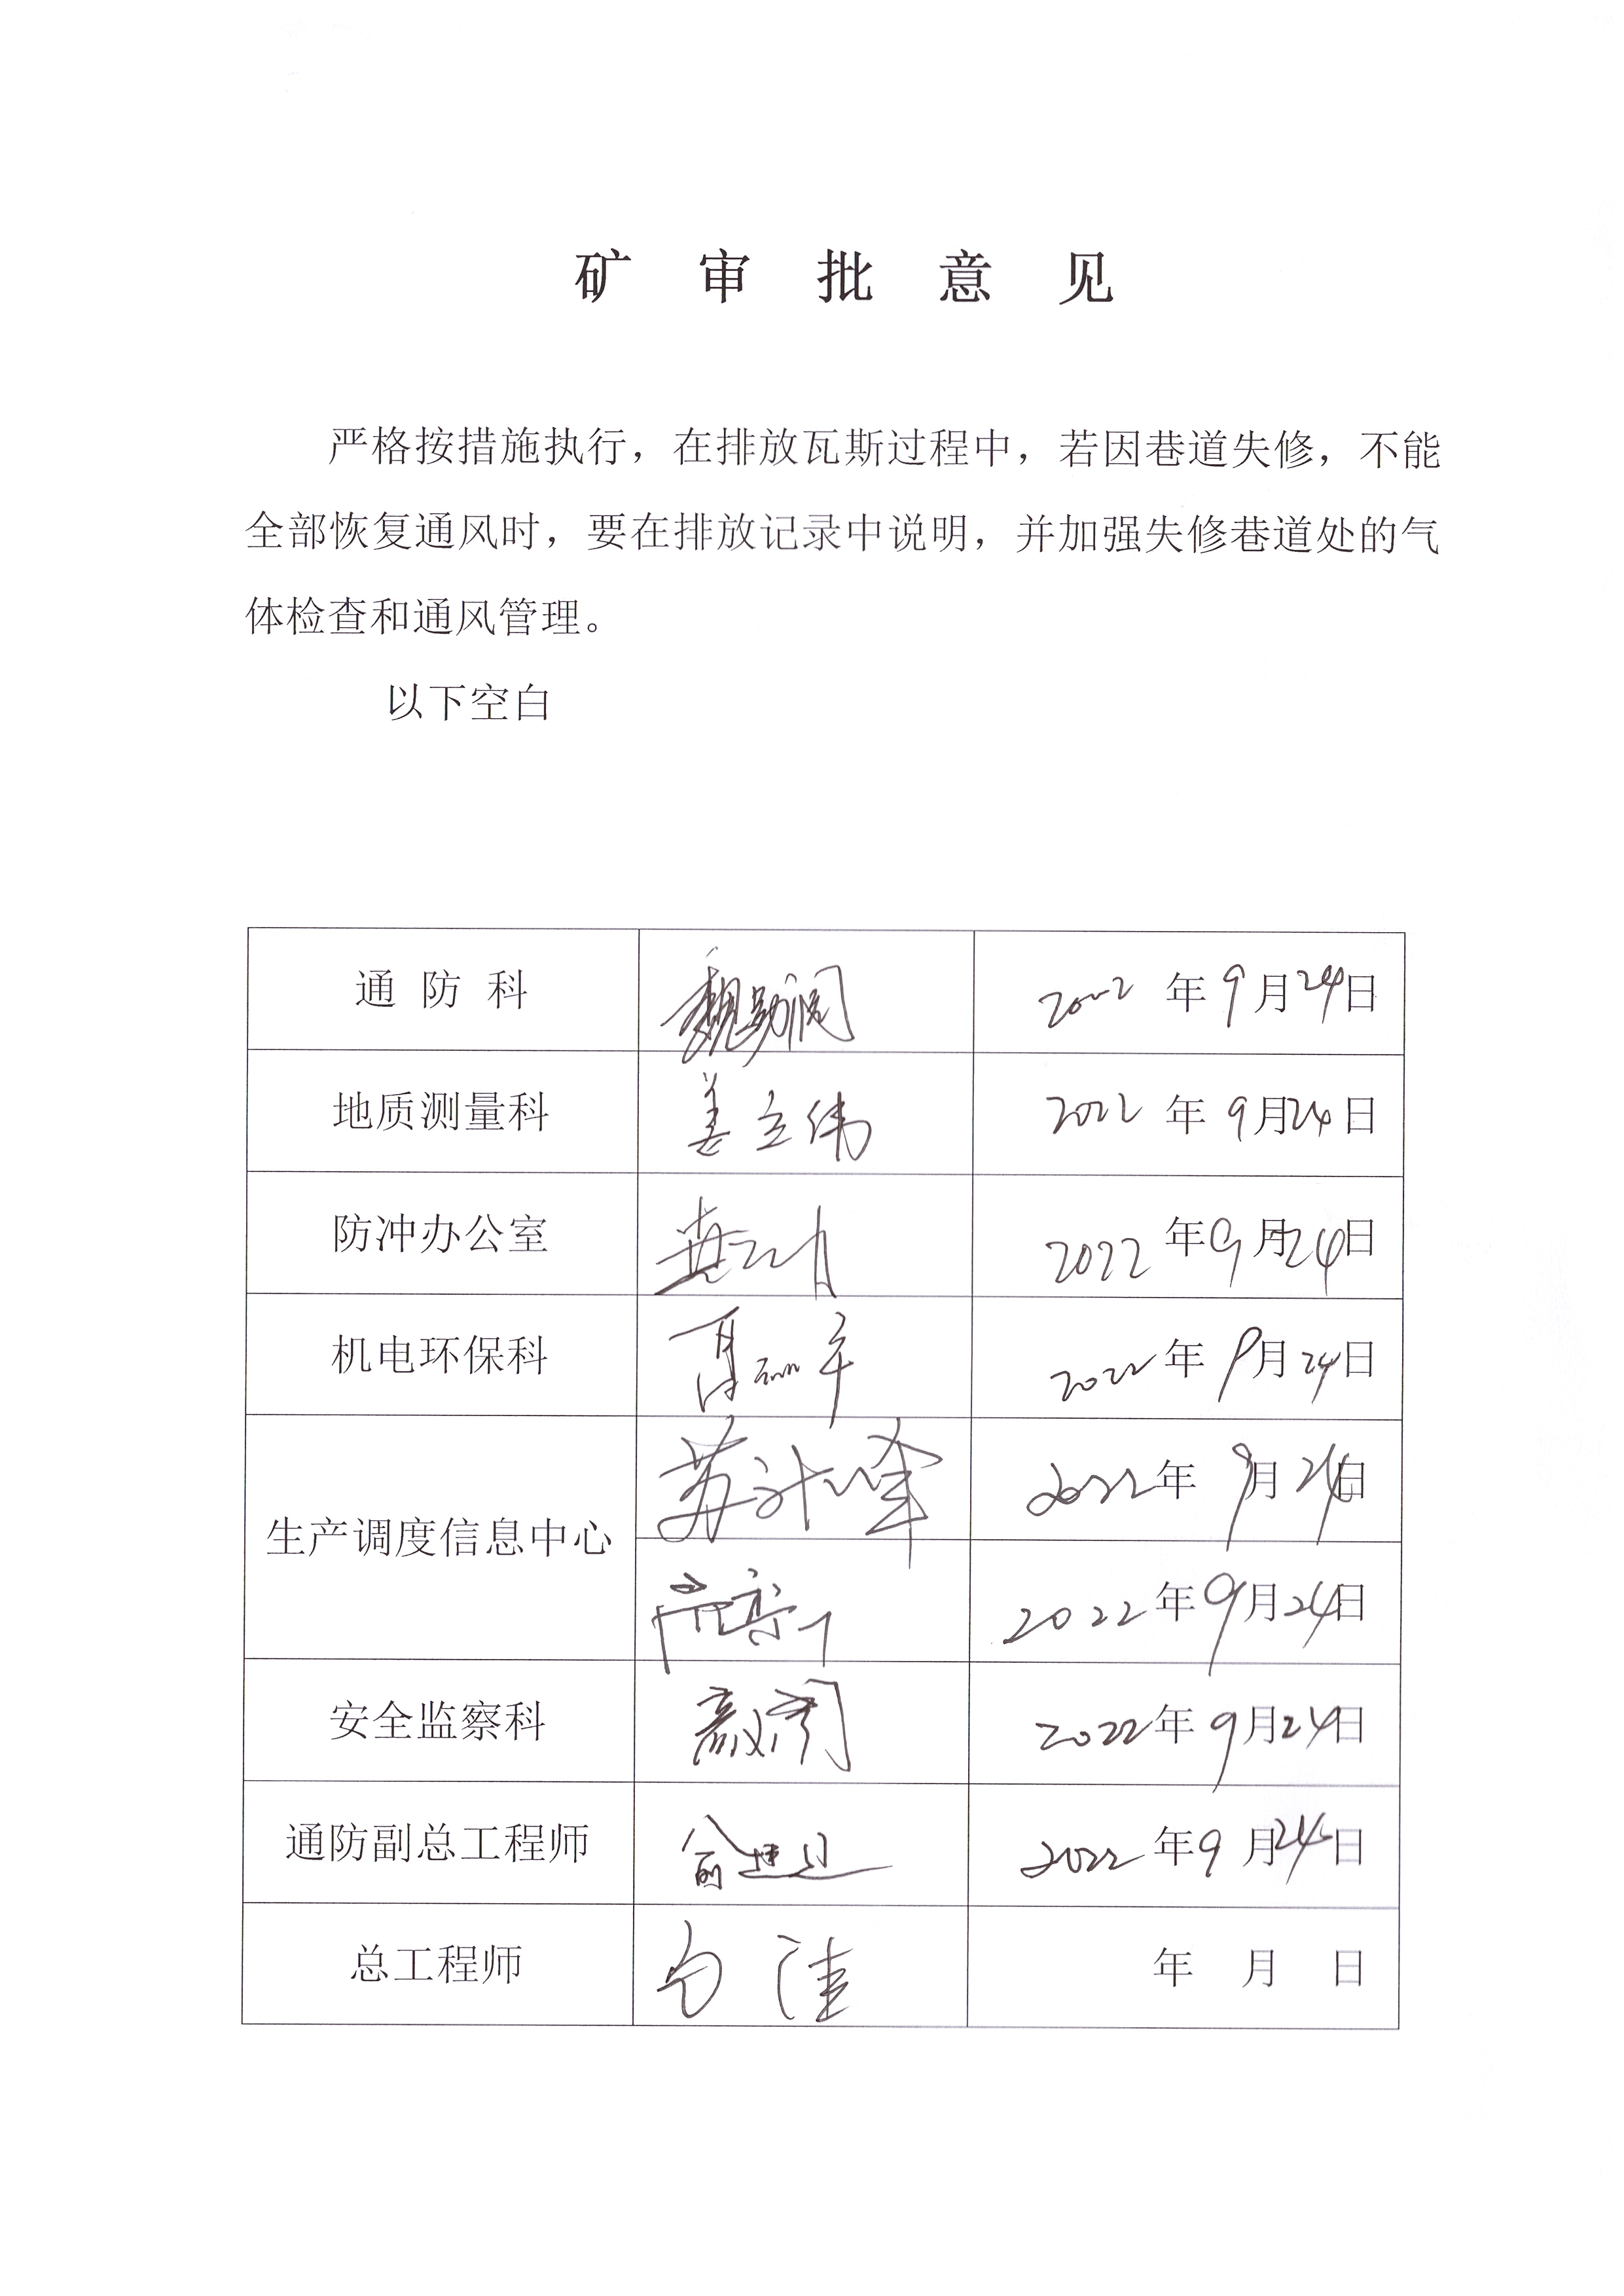 矿审批意见
严格按措施执行，在排放瓦斯过程中，若因巷道失修，不能
全部恢复通风时，要在排放记录中说明，并加强失修巷道处的气
体检查和通风管理。
以下空白
通防科 2022年9月24日
地质测量科 姜立伟 2022年9月24日
防冲办公室 2022年9月24日
机电环保科 2022年9月24日
生产调度信息中心 2022年9月24日
2022年9月24日
安全监察科 2022年9月24日
通防副总工程师 2022年9月24日
总工程师 年月日